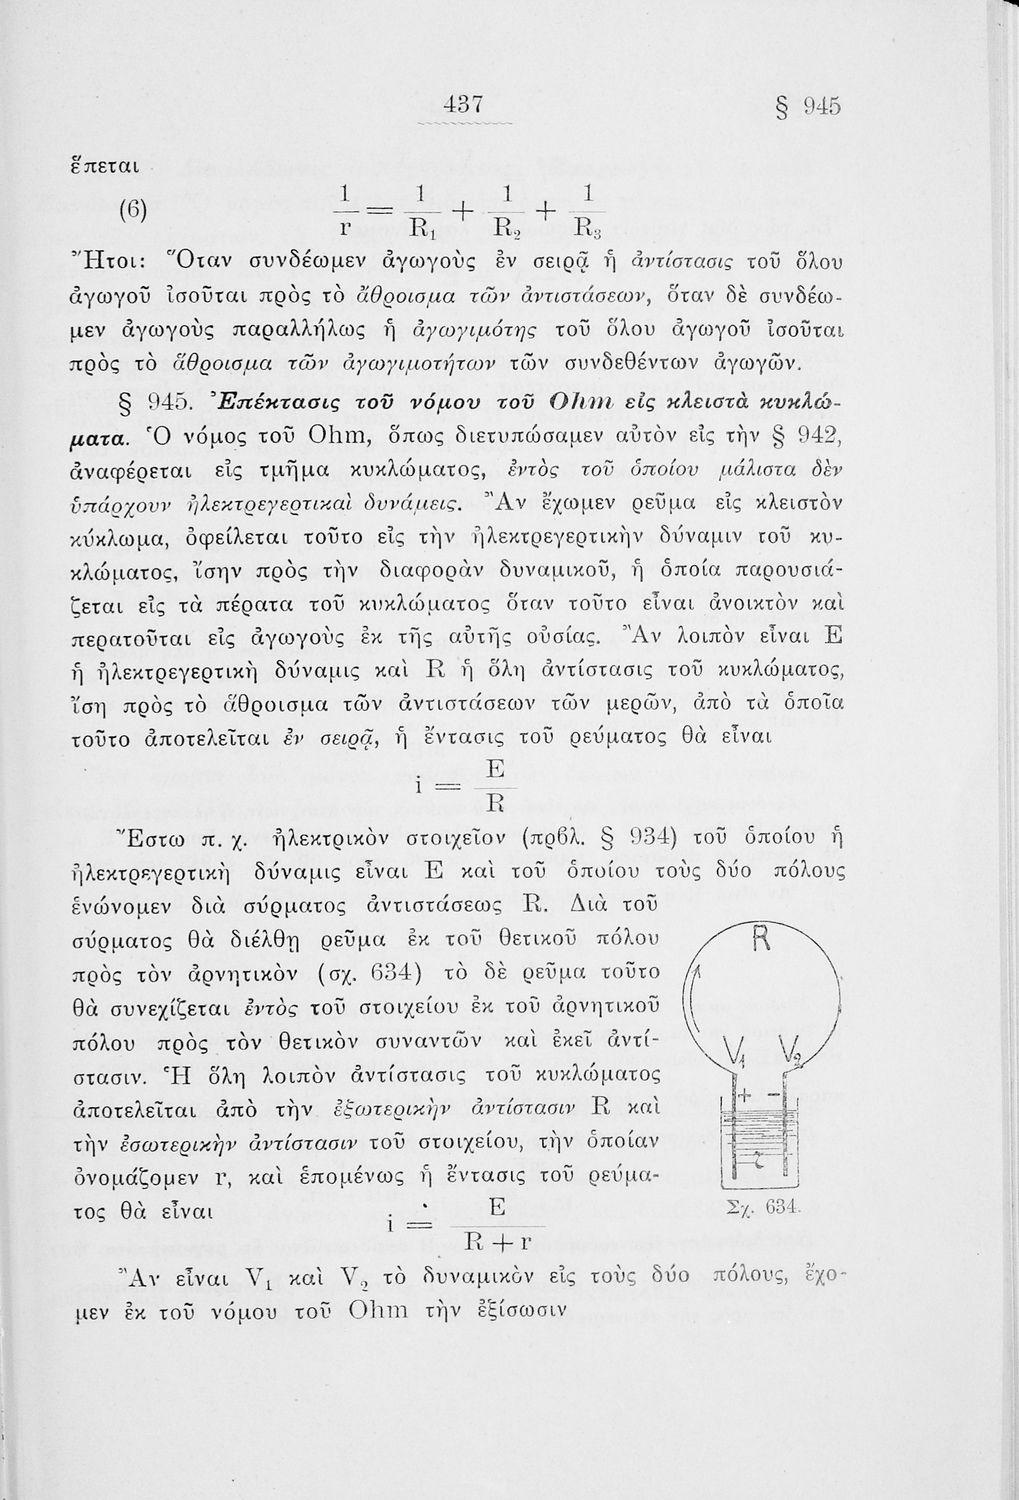 437 § 945
ἕπεται
(6) 1/r = 1/R₁ + 1/R₂ + 1/R₃
Ἤτοι: Ὅταν συνδέωμεν ἀγωγοὺς ἐν σειρᾷ ἡ ἀντίστασις τοῦ ὅλου
ἀγωγοῦ ἰσοῦται πρὸς τὸ ἄθροισμα τῶν ἀντιστάσεων, ὅταν δὲ συνδέω-
μεν ἀγωγοὺς παραλλήλως ἡ ἀγωγιμότης τοῦ ὅλου ἀγωγοῦ ἰσοῦται
πρὸς τὸ ἄθροισμα τῶν ἀγωγιμοτήτων τῶν συνδεθέντων ἀγωγῶν.
§ 945. Ἐπέκτασις τοῦ νόμου τοῦ Ohm εἰς κλειστὰ κυκλώ-
ματα. Ὁ νόμος τοῦ Ohm, ὅπως διετυπώσαμεν αὐτὸν εἰς τὴν § 942,
ἀναφέρεται εἰς τμῆμα κυκλώματος, ἐντὸς τοῦ ὁποίου μάλιστα δὲν
ὑπάρχουν ἠλεκτρεγερτικαὶ δυνάμεις. Ἂν ἔχωμεν ρεῦμα εἰς κλειστὸν
κύκλωμα, ὀφείλεται τοῦτο εἰς τὴν ἠλεκτρεγερτικὴν δύναμιν τοῦ κυ-
κλώματος, ἴσην πρὸς τὴν διαφορὰν δυναμικοῦ, ἡ ὁποία παρουσιά-
ζεται εἰς τὰ πέρατα τοῦ κυκλώματος ὅταν τοῦτο εἶναι ἀνοικτὸν καὶ
περατοῦται εἰς ἀγωγοὺς ἐκ τῆς αὐτῆς οὐσίας. Ἂν λοιπὸν εἶναι E
ἡ ἠλεκτρεγερτικὴ δύναμις καὶ R ἡ ὅλη ἀντίστασις τοῦ κυκλώματος,
ἴση πρὸς τὸ ἄθροισμα τῶν ἀντιστάσεων τῶν μερῶν, ἀπὸ τὰ ὁποῖα
τοῦτο ἀποτελεῖται ἐν σειρᾷ, ἡ ἔντασις τοῦ ρεύματος θὰ εἶναι
i = E/R
Ἔστω π. χ. ἠλεκτρικὸν στοιχεῖον (πρβλ. § 934) τοῦ ὁποίου ἡ
ἠλεκτρεγερτικὴ δύναμις εἶναι E καὶ τοῦ ὁποίου τοὺς δύο πόλους
ἑνώνομεν διὰ σύρματος ἀντιστάσεως R. Διὰ τοῦ
σύρματος θὰ διέλθῃ ρεῦμα ἐκ τοῦ θετικοῦ πόλου
πρὸς τὸν ἀρνητικὸν (σχ. 634) τὸ δὲ ρεῦμα τοῦτο
θὰ συνεχίζεται ἐντὸς τοῦ στοιχείου ἐκ τοῦ ἀρνητικοῦ
πόλου πρὸς τὸν θετικὸν συναντῶν καὶ ἐκεῖ ἀντί-
στασιν. Ἡ ὅλη λοιπὸν ἀντίστασις τοῦ κυκλώματος
ἀποτελεῖται ἀπὸ τὴν ἐξωτερικὴν ἀντίστασιν R καὶ
τὴν ἐσωτερικὴν ἀντίστασιν τοῦ στοιχείου, τὴν ὁποίαν
ὀνομάζομεν r, καὶ ἑπομένως ἡ ἔντασις τοῦ ρεύμα-
τος θὰ εἶναι
i = E/(R + r)
R
V₁ V₂
+ −
r
Σχ. 634.
Ἂν εἶναι V₁ καὶ V₂ τὸ δυναμικὸν εἰς τοὺς δύο πόλους, ἔχο-
μεν ἐκ τοῦ νόμου τοῦ Ohm τὴν ἐξίσωσιν